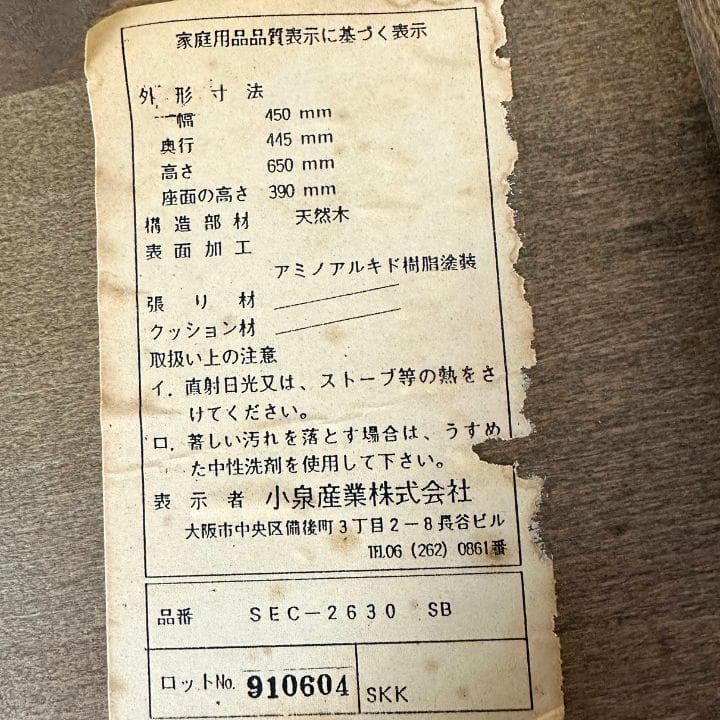 家庭用品品質表示に基づく表示
外形寸法
幅 450 mm
奥行 445 mm
高さ 650 mm
座面の高さ 390 mm
構造部材 天然木
表面加工
アミノアルキド樹脂塗装
張り材
クッション材
取扱い上の注意
イ．直射日光又は、ストーブ等の熱をさ
けてください。
ロ．著しい汚れを落とす場合は、うすめ
た中性洗剤を使用して下さい。
表示者 小泉産業株式会社
大阪市中央区備後町3丁目2－8長谷ビル
TEL.06 (262) 0861番
品番 SEC－2630 SB
ロットNo. 910604 SKK